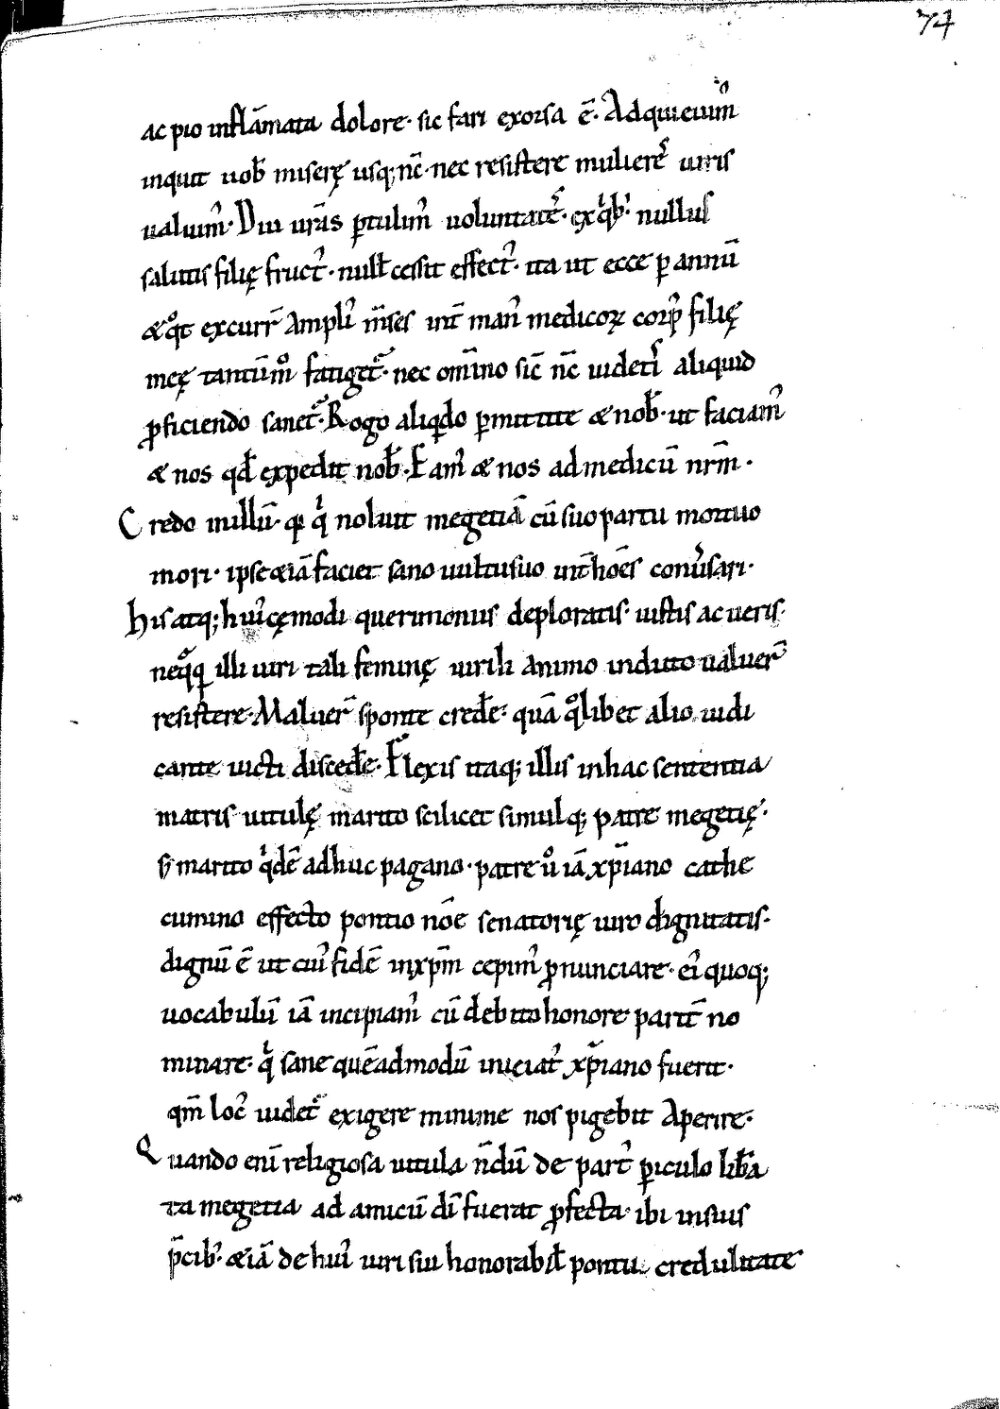 74
ac pio inflāmata dolore· sic fari exorsa ē· Adquieuim᷒
inquit uob̄ miserę usq; nc̄· nec resistere mulierēs uiris
ualuim᷒· Diu urās ꝑtulim᷒ uoluntatēs· exqͥb᷒· nullus
salutis filię fruct᷒· null̄ cessit effect᷒· ita ut ecce ꝑ annū
&qͦt excurr̄ ampli᷒ m̄ses int̄ man᷒ medicoꝝ corp᷒ filię
meę tantūmͦ fatiget᷑· nec omīno sic̄ nc̄ uideti᷒ aliquid
ꝓficiendo sanet᷑· Rogo aliqᷓdo ꝑmittite & nob̄· ut faciam᷒
& nos qd̄ expedit nob̄· Eam᷒ & nos ad medicū nrm̄·
Credo in illū· qͥ nolust megetiā cū suo partu mortuo
mori· ipse &iā faciet sano uultu suo int̄ hoēs conūsari·
His atq; hui᷒cęmodi querimoniis deploratis· iustis ac ueris·
neqͣꝗ illi uiri tali feminę uirili animo induto ualuer̄
resistere· Maluer̄ sponte crede᷑· quā qͦlibet alio iudi
cante uicti discede᷑· Flexis itaq; illis in hac sententia
matris uitulę marito scilicet simulq; patre megetię·
s; marito qͥdē adhuc pagano· patre ū iā xp̄iano cathe
cumino effecto pontio noē senatorię uiro dignitatis·
dignū ē ut cui᷒ fidē in xpm̄ cepim᷒ ꝓnunciare· ei᷒ quoq;
uocabulū iā incipiam᷒ cū debito honore parit̄ no
minare· qͥ sane quēadmodū iniciat᷒ xp̄iano fuerit·
qm̄ loc᷒ uidet᷑ exigere minime nos pigebit aperire·
Quando enī religiosa uitula n̄dū de part᷒ ꝑiculo lib̄a
ta megetia ad amicū dī fuerat ꝓfecta· ibi in suis
p̄cib᷒· &iā de hui᷒ uiri sui honorabil̄ pontii credulitate